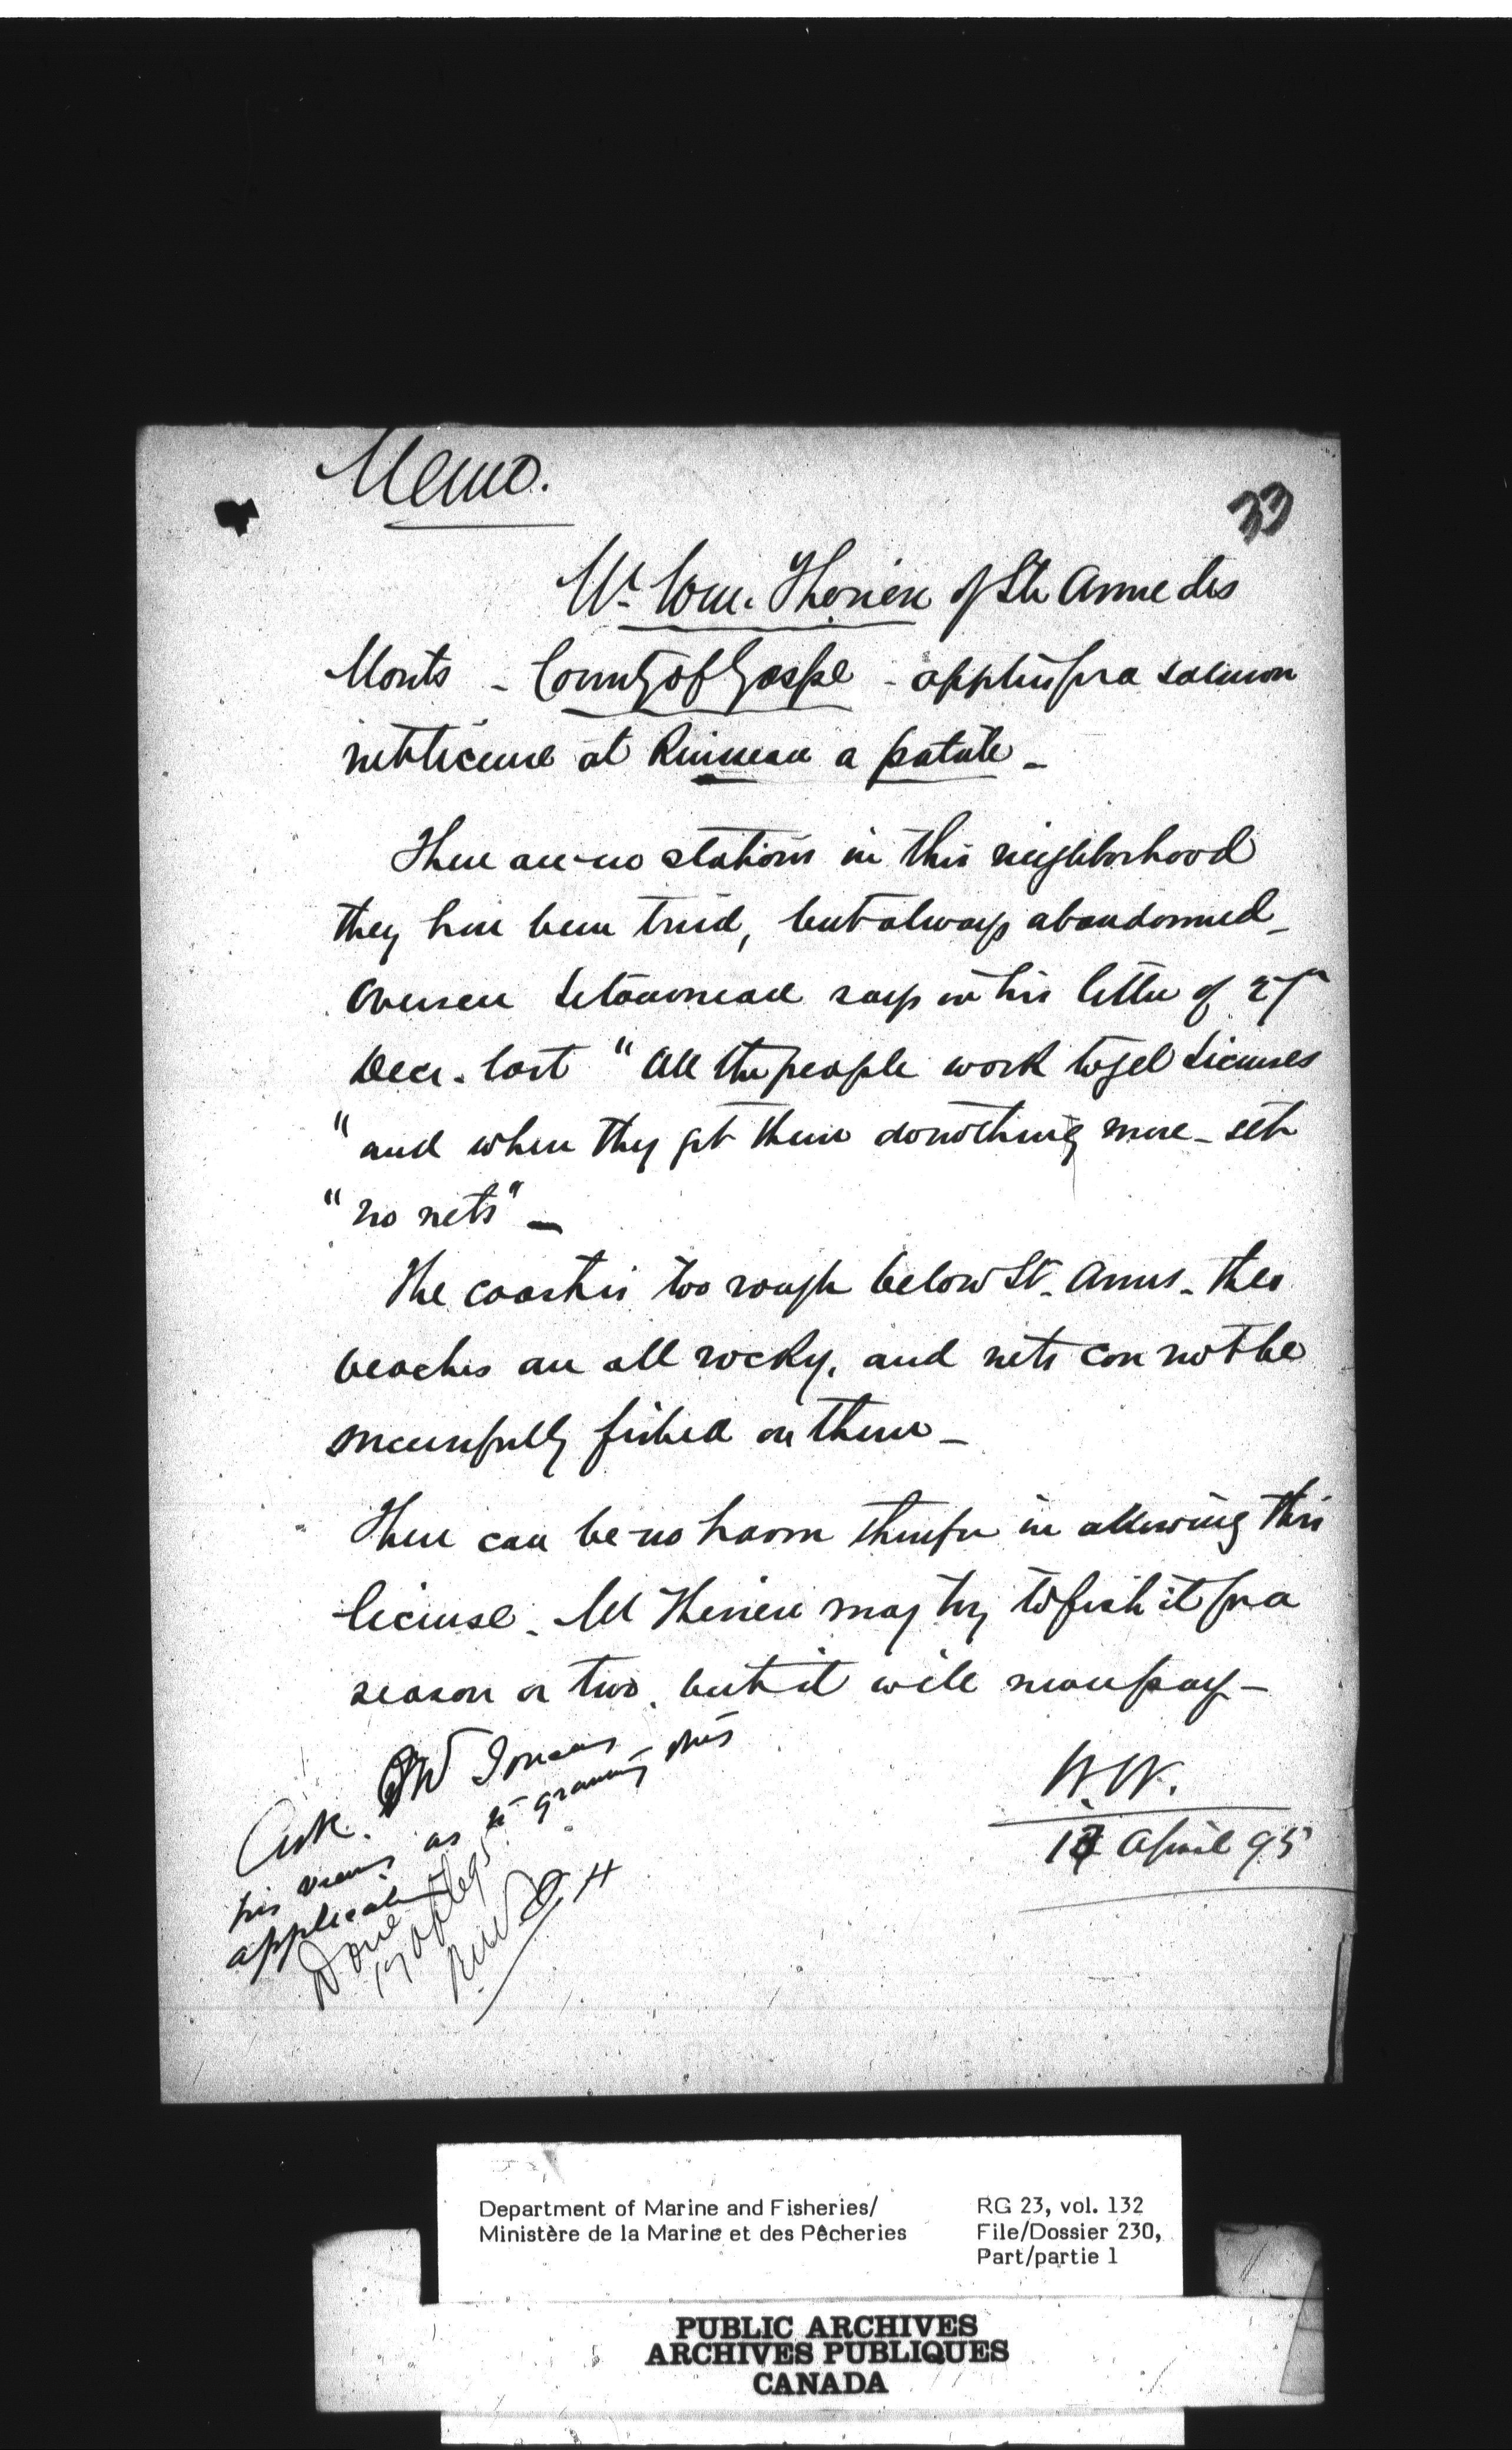 Memo.
33
Mr. Wm. Therien of Ste Anne des
Monts - County of Gaspe - applies for a salmon
net license at Ruisseau a patate -
There are no stations in this neighborhood
they have been tried, but always abandonned -
Overseer Letourneau says in his letter of 27th
Decr. last "All the people work to get licenses
"and when they get them do nothing more - set
"no nets" -
The coast is too rough below St. Annes - the
beaches are all rocky, and nets can not be
successfully fished on them -
There can be no harm therefor in allowing this
license. Mr Therien may try to fish it for a
season or two, but it will never pay -
W.W.
April 95
Ask.
his views as to granting this
application
Done
Department of Marine and Fisheries/
Ministère de la Marine et des Pêcheries
RG 23, vol. 132
File/Dossier 230,
Part/partie 1
PUBLIC ARCHIVES
ARCHIVES PUBLIQUES
CANADA